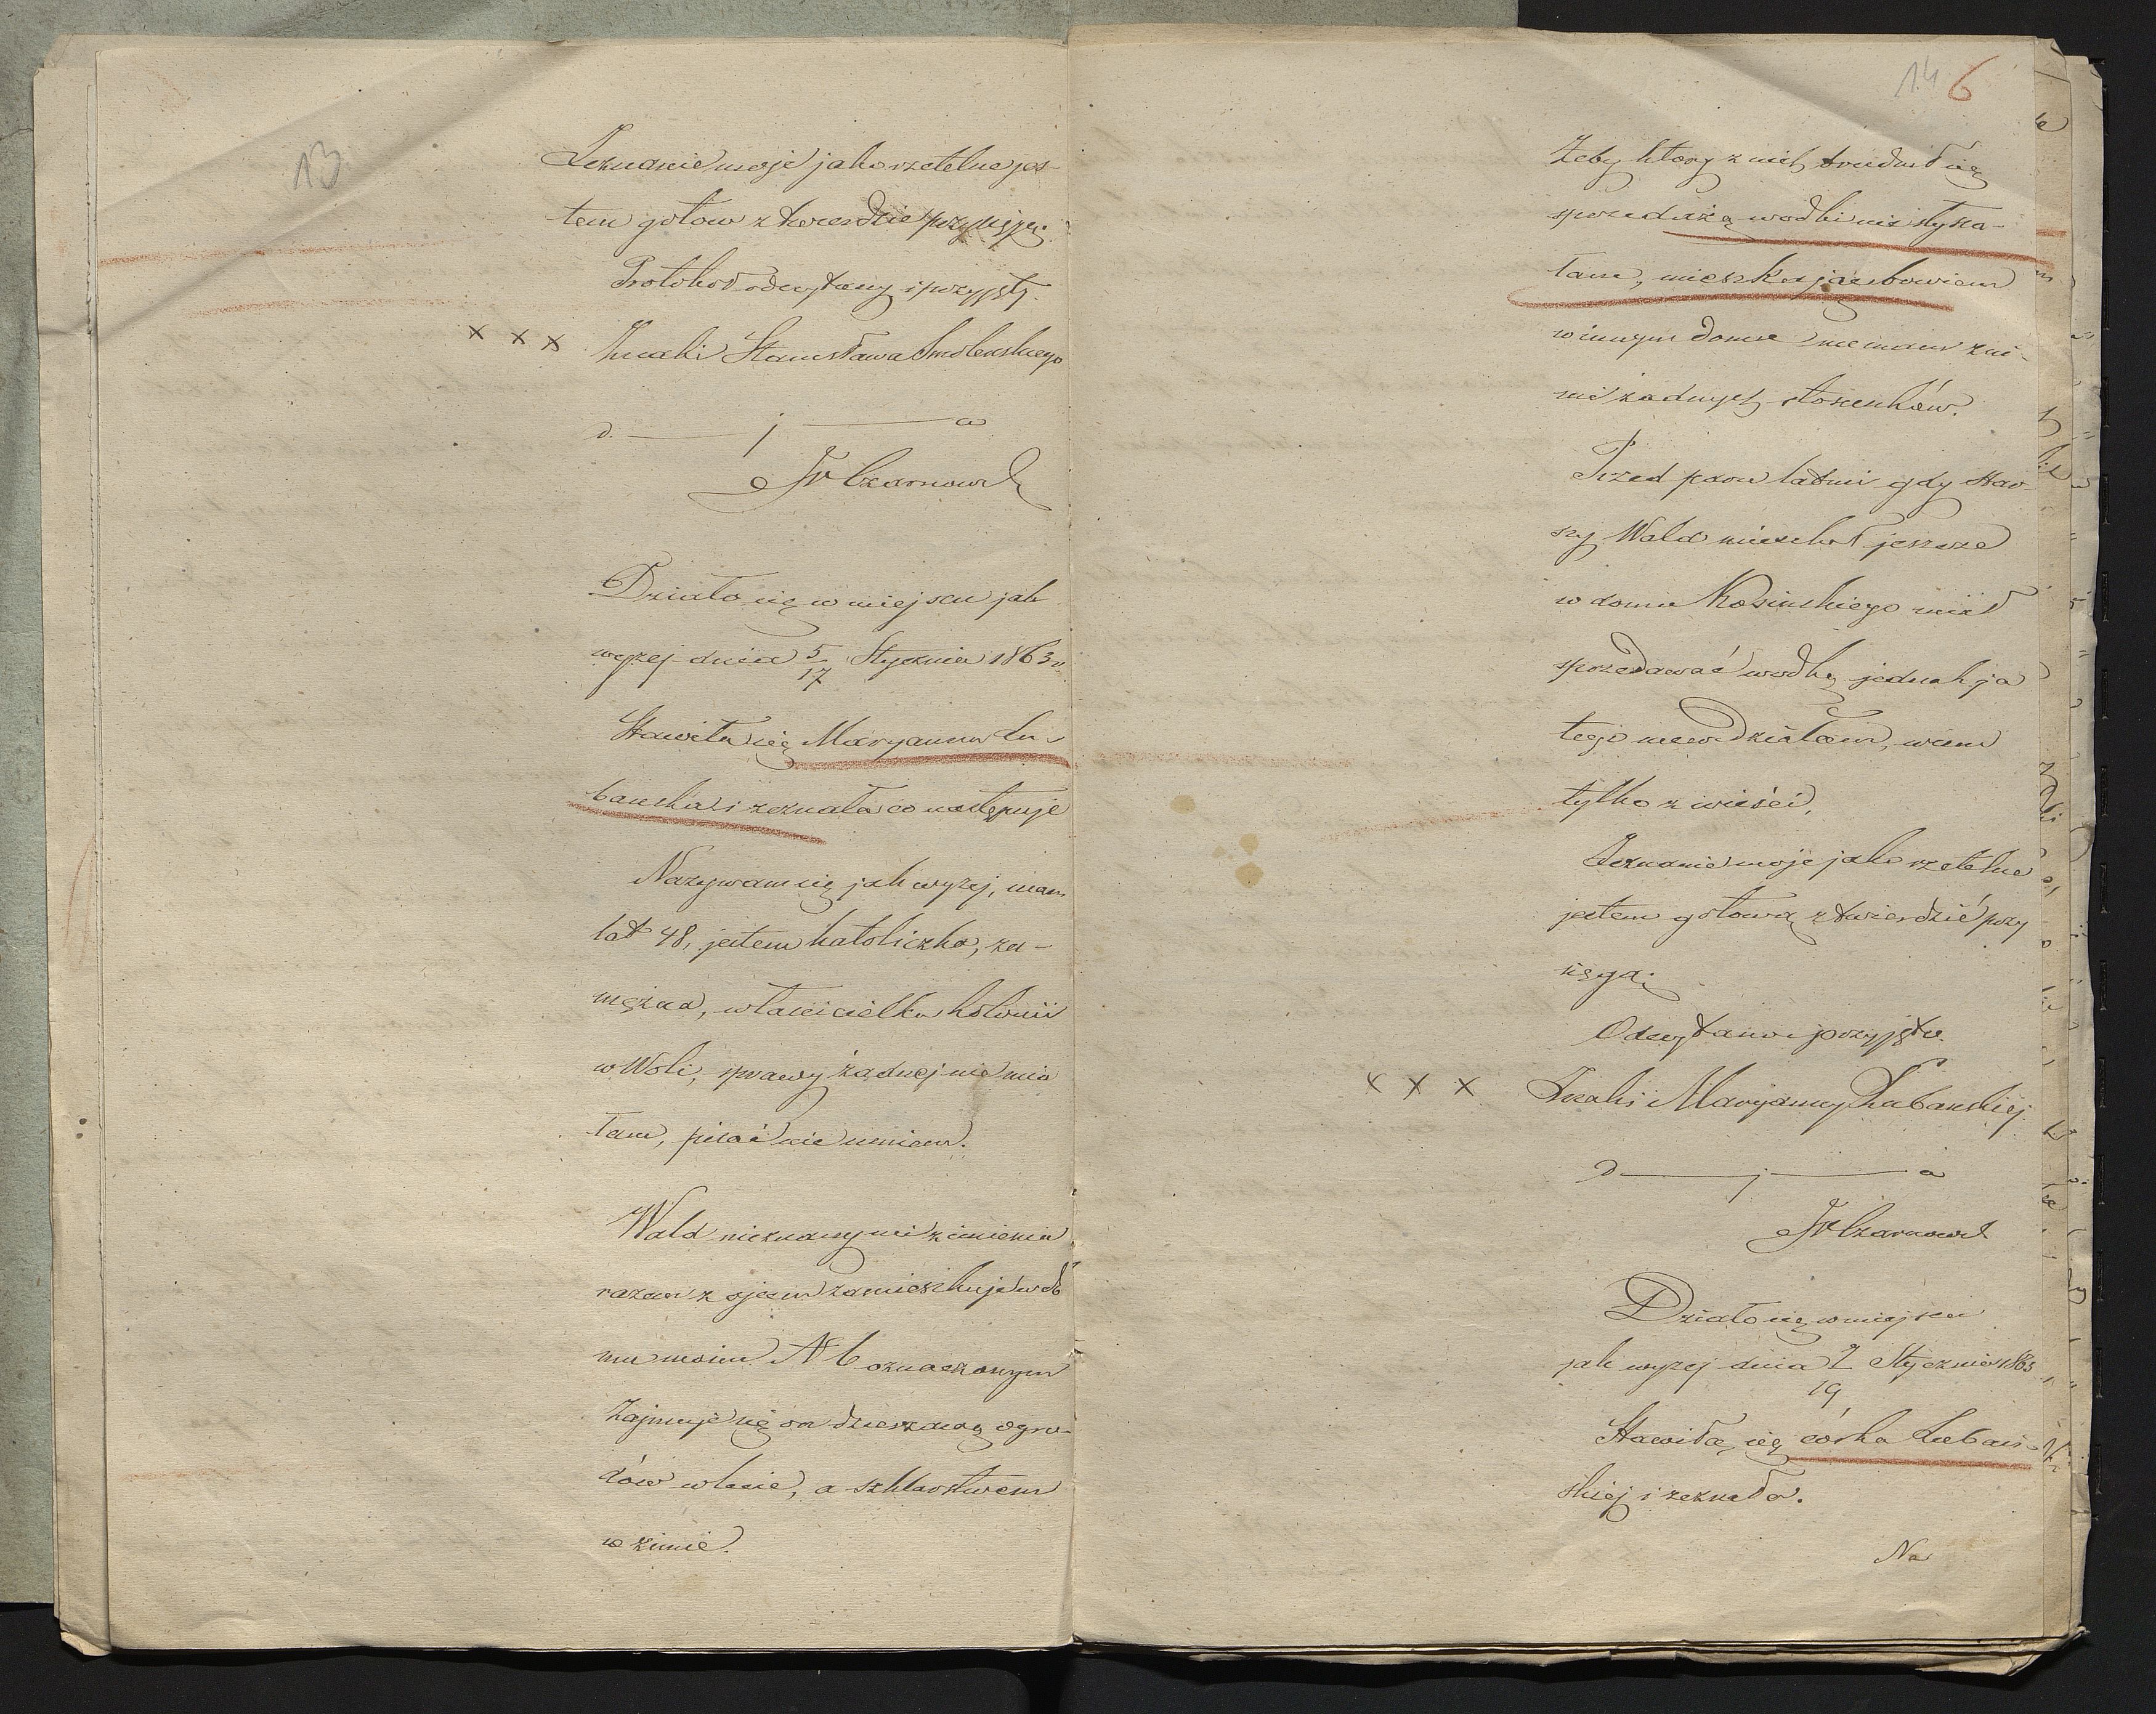 13
Zeznanie moje jako rzetelne jes-
tem gotów ztwierdzić przysięgą.
Protokoł odczytany i przyjęty.
x x x Znaki Stanisława Smoleńskiego
d. — j — a
Dziato się w miejscu jak
wyzej dnia 5/17 Stycznia 1863 r.
Stawiła się Maryanna Lu-
bańska i zeznała co następuje
Nazywam się jak wyzej, mam
lat 48, jestem katoliczka, za-
mężna, właścicielka kolonii
w Woli, sprawy żadnej nie mia
łam, pisać nie umiem.
Wald nieznany mi z imienia
razem z ojcem zamieszkuje w do
mu moim N 6 oznaczonym
Zajmuje się on dzierzawą ogro-
dów w lecie, a szklarstwem
w zimie.
14 6
Żeby który z nich trudnił się
sprzedażą wodki nie słysza-
łam, mieszkając bowiem
w innym domu nie mam z ni-
mi żadnych stosunków.
Przed paru latmi gdy star-
szy Wald mieszkał jeszcze
w domu Kosinskiego miał
sprzedawać wodkę jednak ja
tego niewidziałam, wiem
tylko z wieści.
Zeznanie moje jako rzetelne
jestem gotową ztwierdzić przy
sięgą.
Odczytano i przyjęto.
x x x Znaki Maryanny Lubańskiej
d — j — a
Działo się w miejscu
jak wyzej dnia 7/19 Stycznia 1863
Stawiła się córka Lubań-
skiej i zeznała.
Na